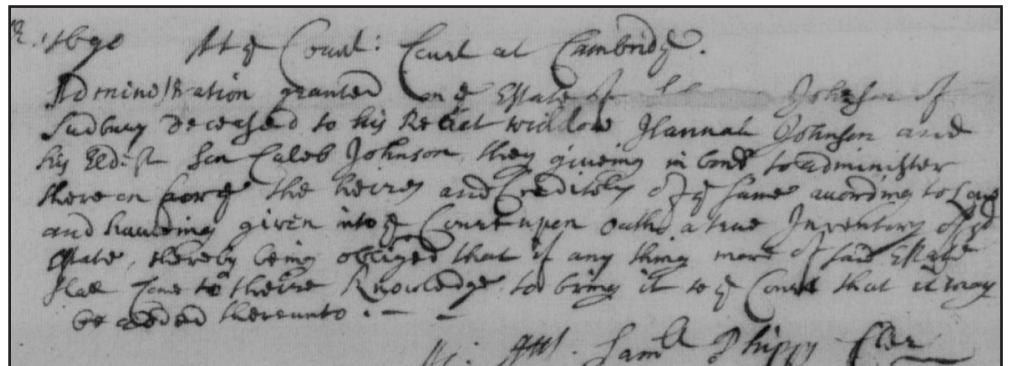 1690 At ye Count: Court at Cambridge.
Administration granted on ye Estate of Johnson of
Sudbury Deceased to his Relict widdow Hannah Johnson and
his Eldest Son Caleb Johnson, they giveing in bond to administer
there on for ye the heires and Creditors of ye same according to Law
and haveing given into ye Court upon oath a true Inventory of sd
Estate, thereby being obliged that if any thing more of said Estate
shall Come to theire Knowledge to bring it to ye Court that it may
be added thereunto.
Attt. Samll Phipps Cler